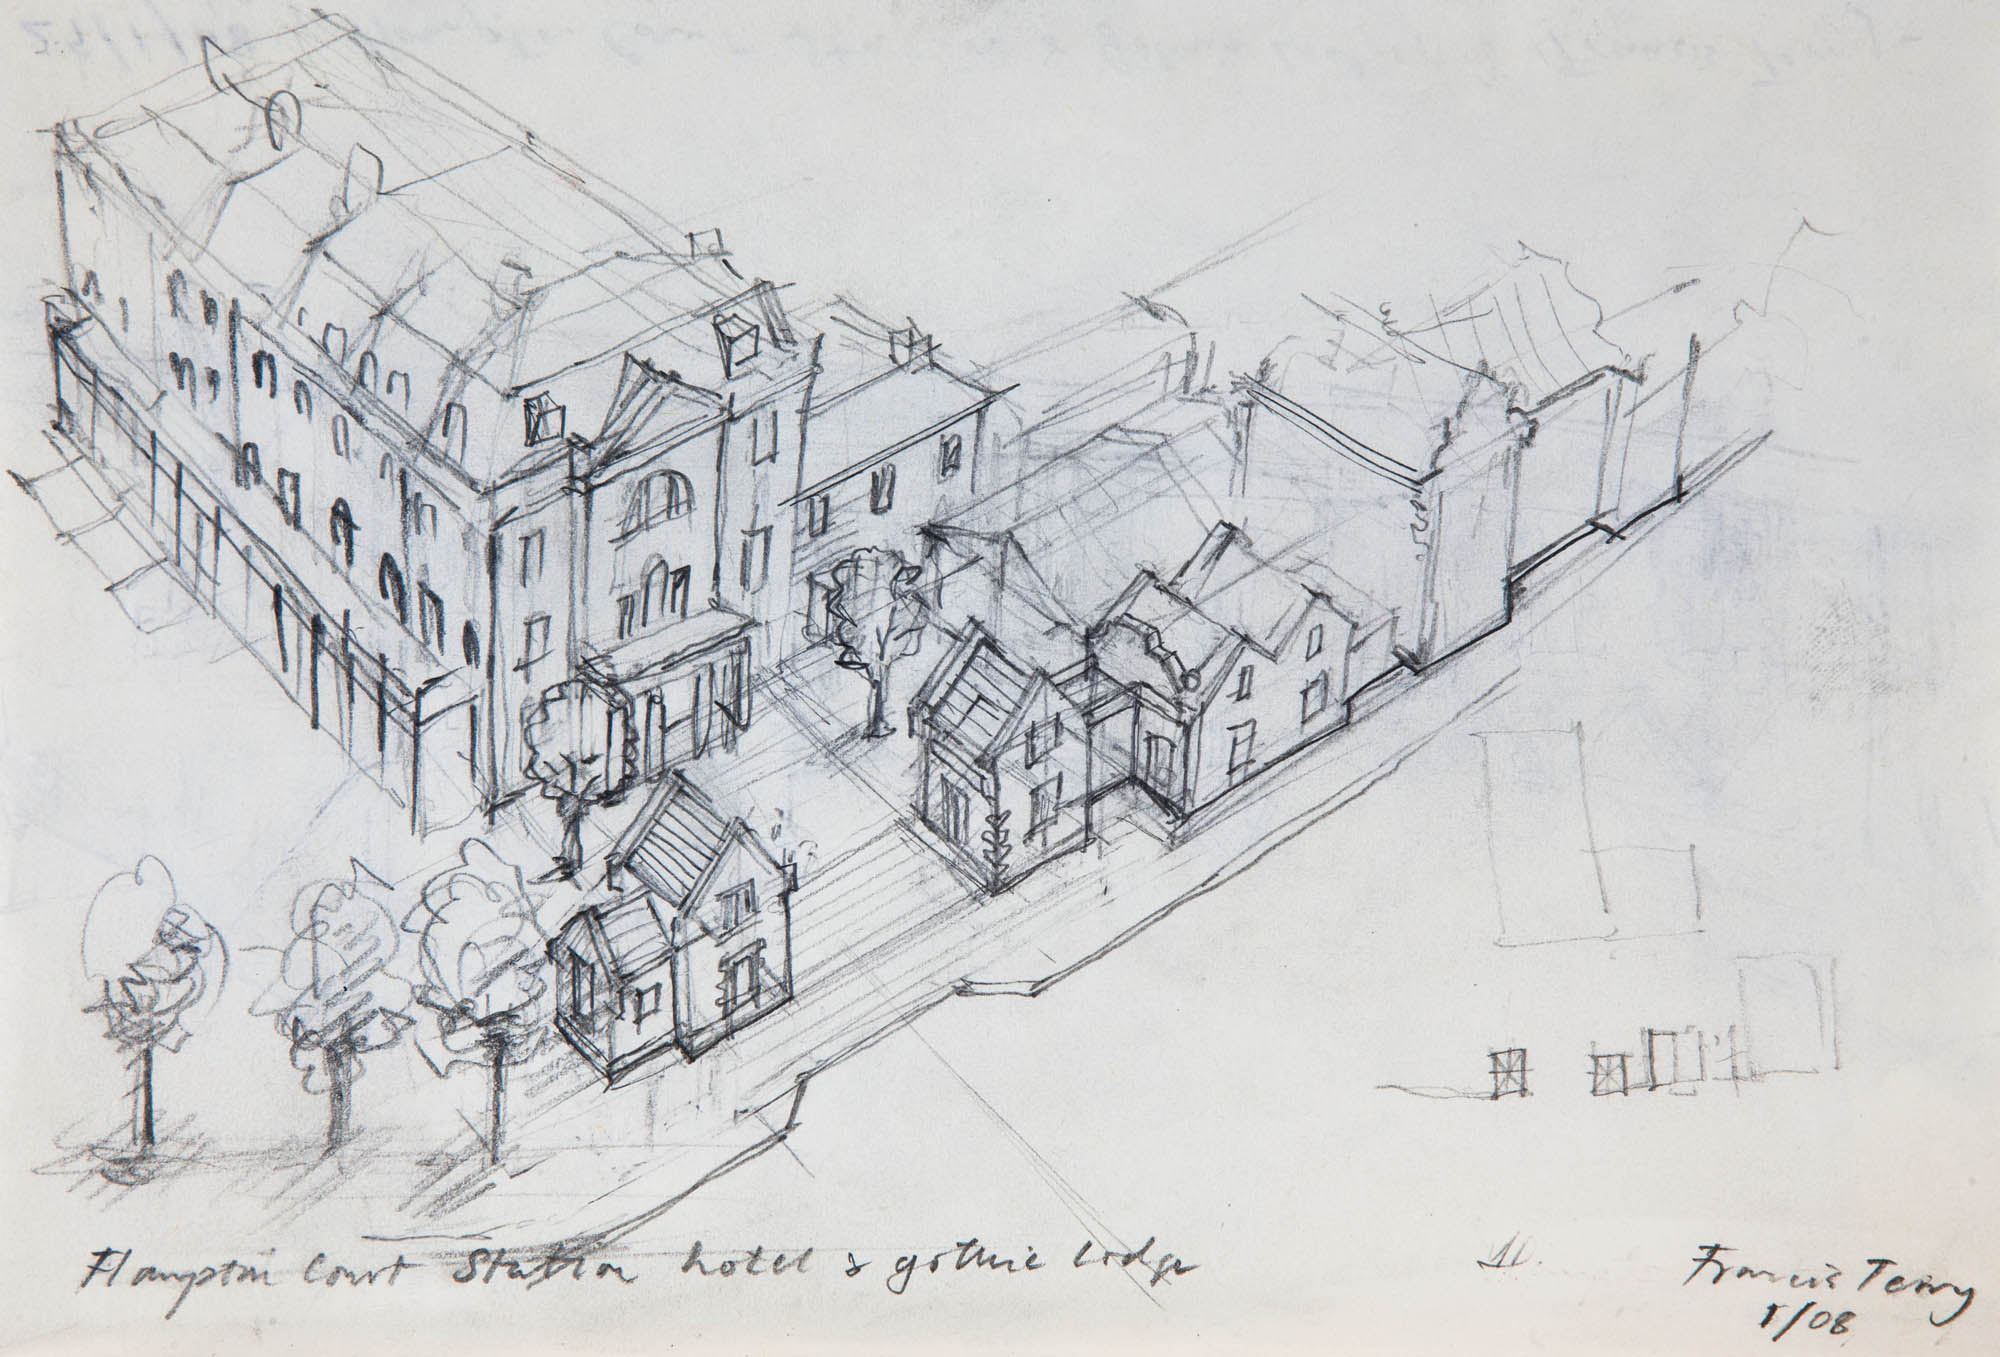 Hampton Court Station hotel & gothic lodge
Francis Terry
1/08